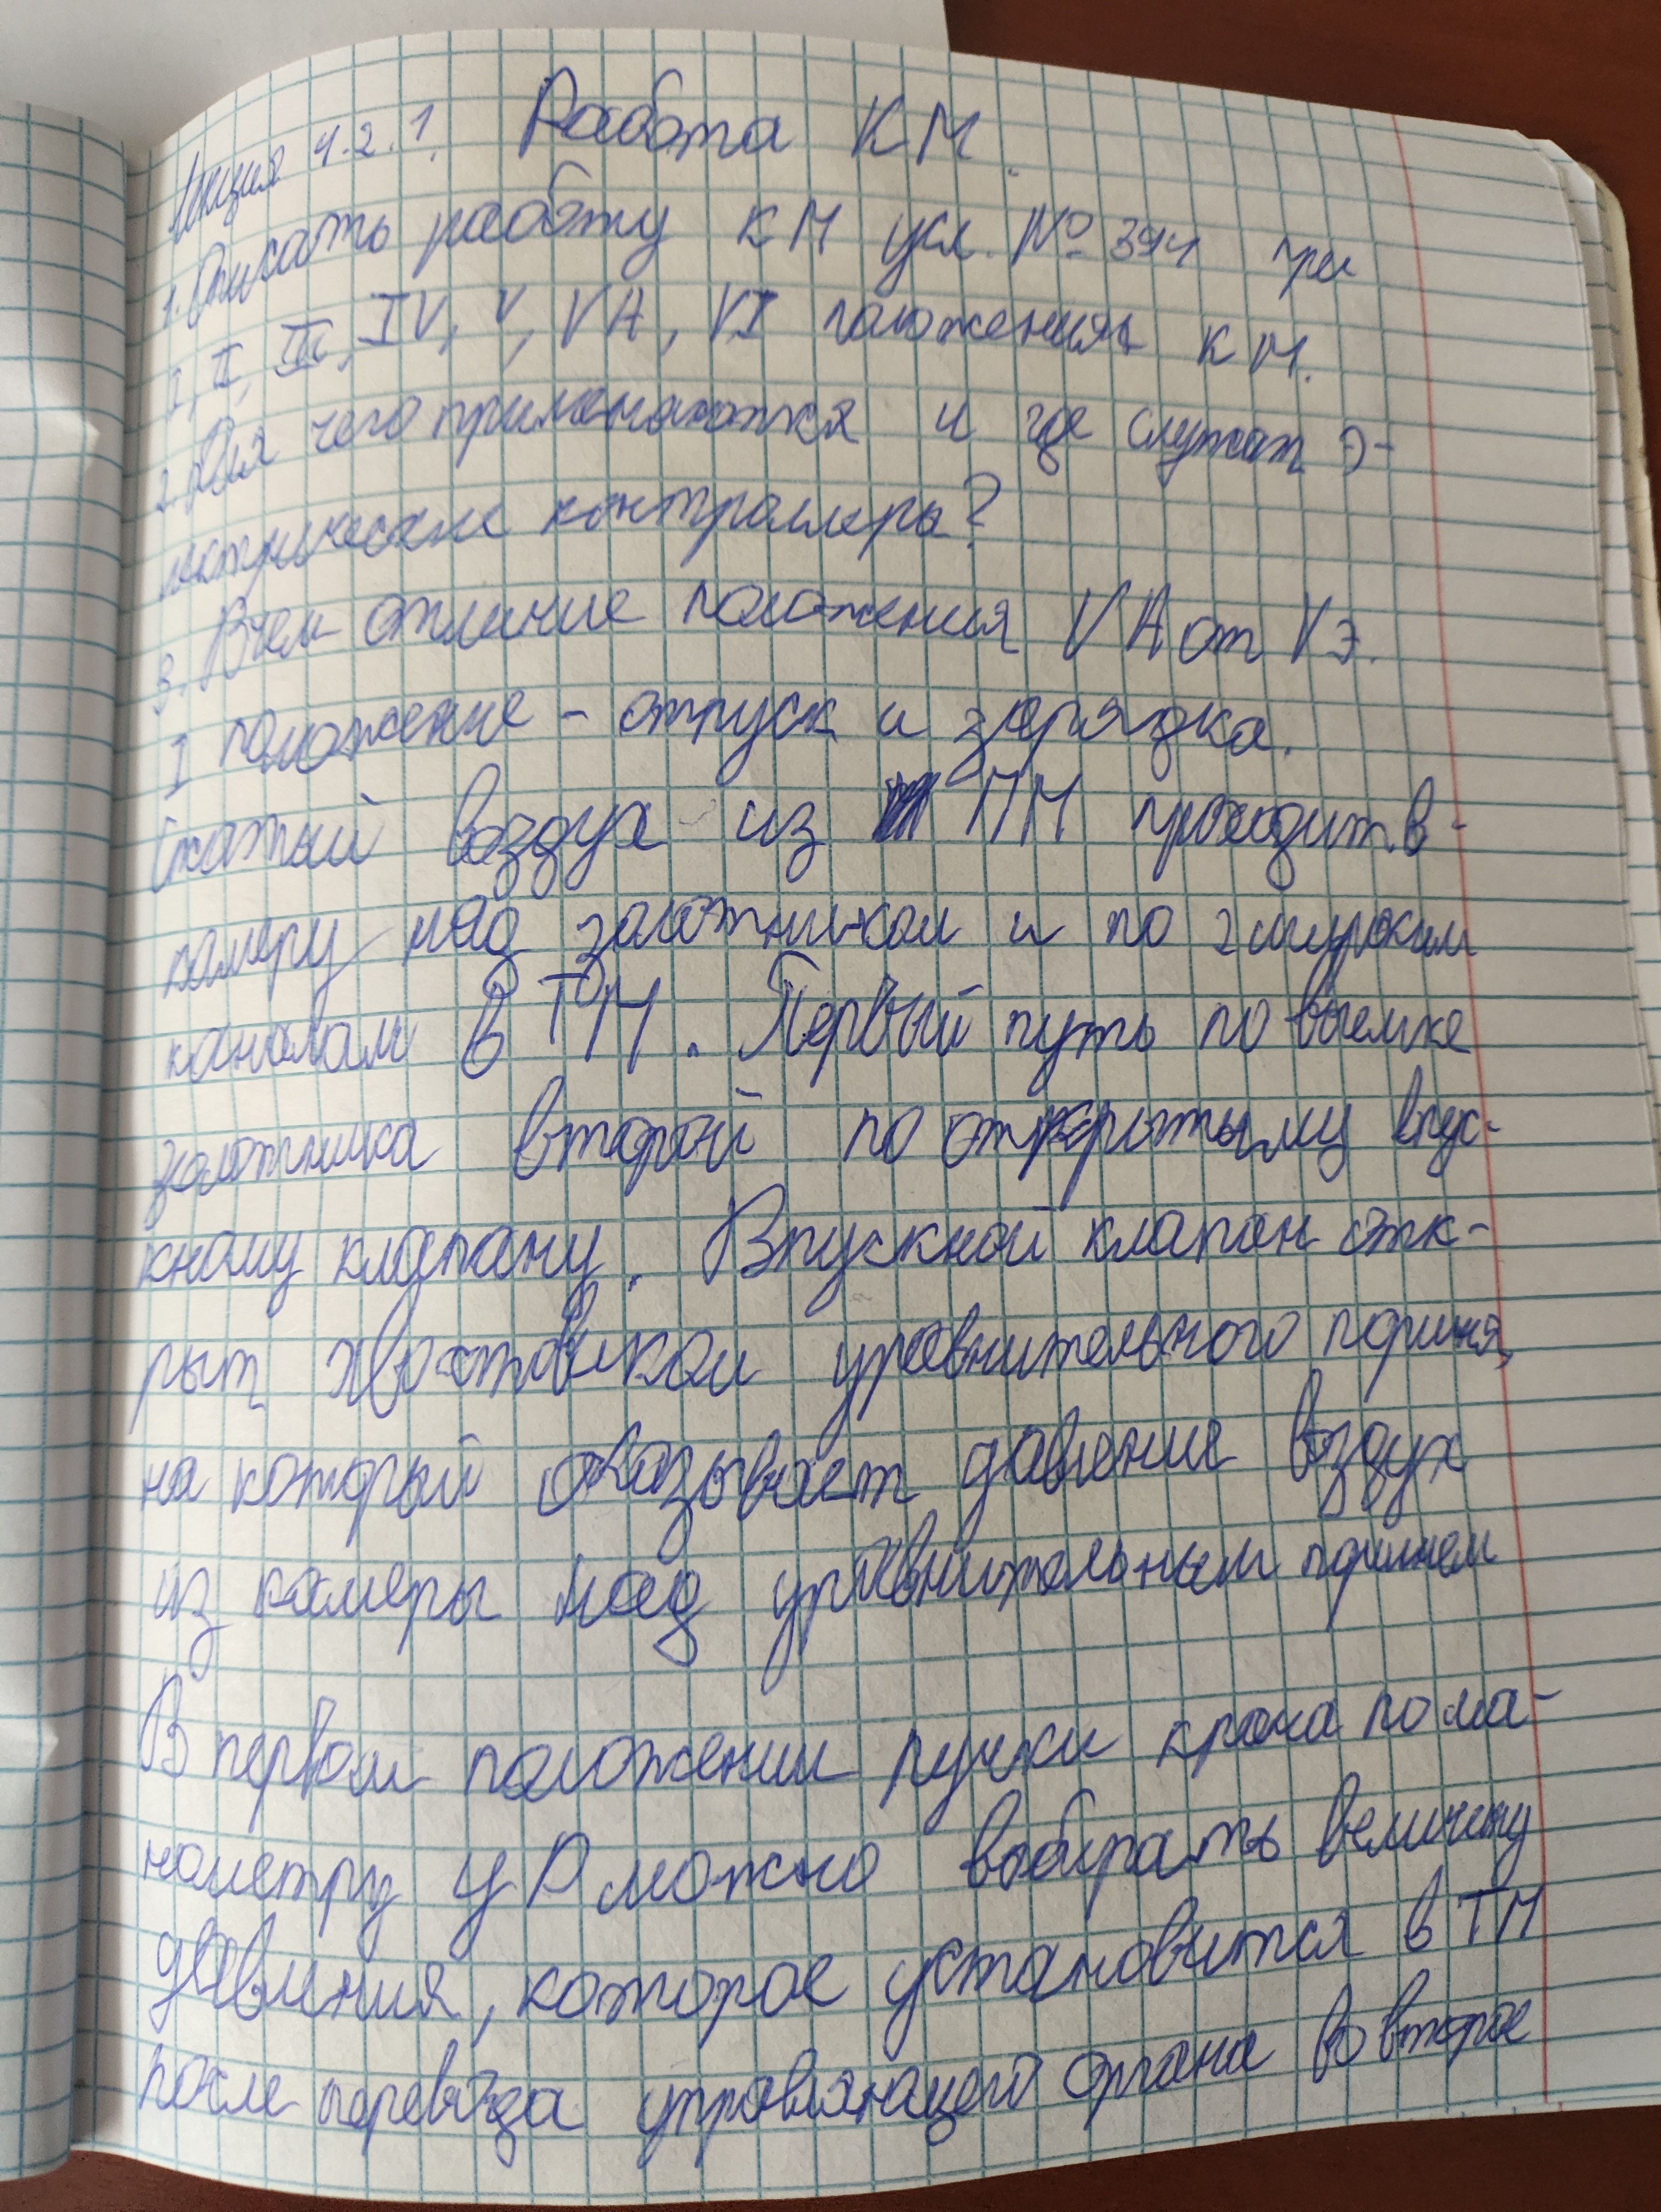 Лекция 4.2.1. Работа КМ.
1. Описать работу КМ усл. № 394 при
I, II, III, IV, V, VA, VI положениях КМ.
2. Для чего применяются и где служат э-
лектрические контроллеры?
3. В чем отличие положения VA от VЭ.
I положение - отпуск и зарядка.
Сжатый воздух из ПМ проходит в
камеру над золотником и по 2 широким
каналам в ТМ. Первый путь по выемке
золотника второй по открытыму впус-
кному клапану. Впускной клапан отк-
рыт хвостовиком уравнительного поршня,
на который оказывает давление воздух
из камеры над уравнительным поршнем
В первом положении ручки крана по ма-
нометру УР можно выбирать величину
давления, которое установится в ТМ
после перевода управляющего органа во второе